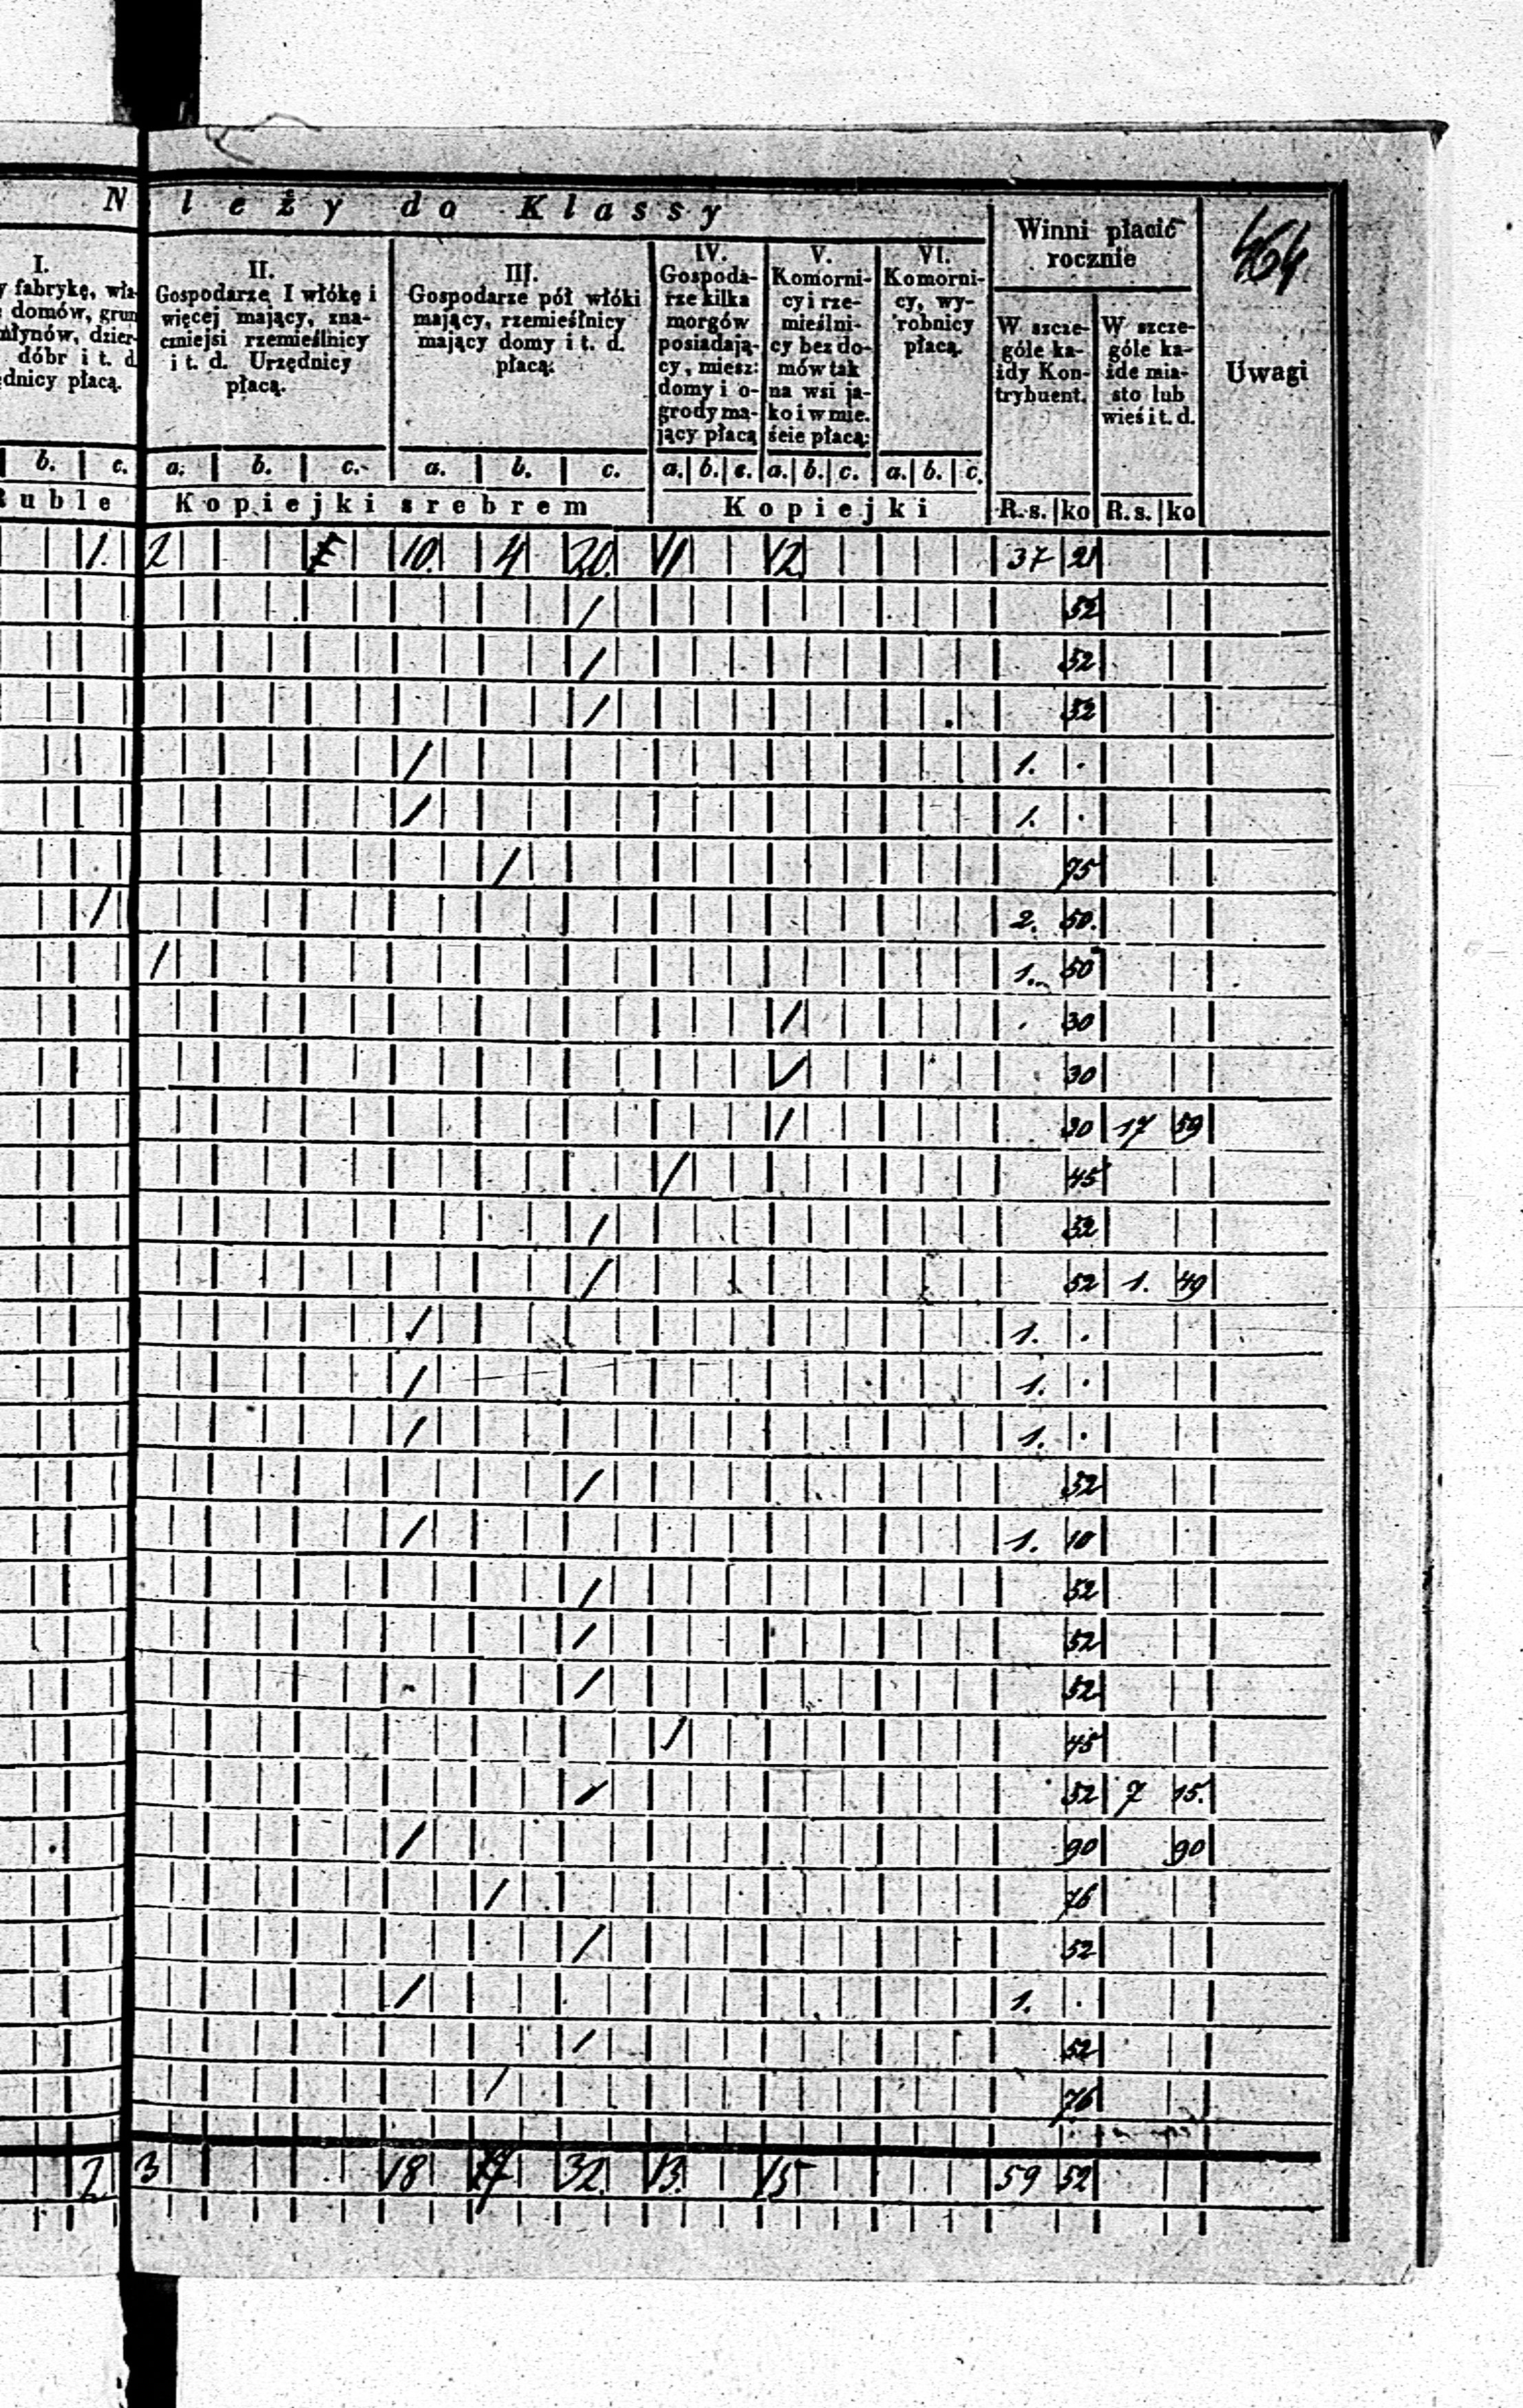 N leży do Klassy
464
I.
y fabrykę, wła-
domów, grun
młynów, dzier-
dóbr i t. d
ędnicy płacą.
II.
Gospodarze I włókę i
więcej mający, zna-
czniejsi rzemieślnicy
i t. d. Urzędnicy
płacą.
III.
Gospodarze pół włóki
mający, rzemieślnicy
mający domy i t. d.
płacą:
IV.
Gospoda-
rze kilka
morgów
posiadają-
cy, miesz:
domy i o-
grody ma-
jący płacą
V.
Komorni-
cy i rze-
mieślni-
cy bez do-
mów tak
na wsi ja-
ko i w mie.
ście płacą:
VI.
Komorni-
cy, wy-
robnicy
płacą.
Winni płacić
rocznie
W szcze-
góle ka-
żdy Kon-
trybuent.
W szcze-
góle ka-
żde mia-
sto lub
wieś i t. d.
Uwagi
b. c. a. b. c. a. b. c. a. b. c. a. b. c. a. b. c.
uble Kopiejki srebrem Kopiejki R. s. ko R. s. ko
1. 2 10 4 20. 11 12. 37 21
/ 52
/ 52
/ 52
/ 1. .
/ 1. .
/ 75
/ 2. 50.
/ 1. 50
/ . 30
/ 30
/ 30 17 59
/ 45
/ 52
/ 52 1. 49
/ 1. .
/ 1. .
/ 1. .
/ 52
/ 1. 10
/ 52
/ 52
/ 52
/ 45
/ 52 7 15.
/ 90 90
/ 76
/ 52
/ 1. .
/ 52
/ 76
2. 3 18 32. 13. 15 59 52